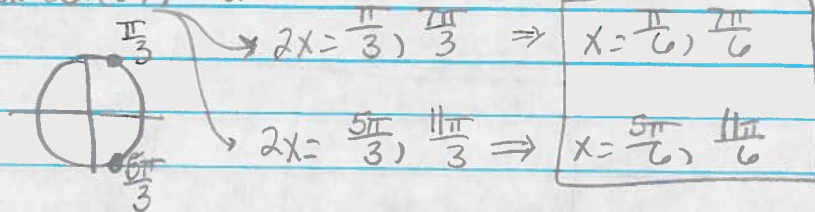 π/3
2x = π/3, 7π/3 ⇒ x = π/6, 7π/6
2x = 5π/3, 11π/3 ⇒ x = 5π/6, 11π/6
5π/3